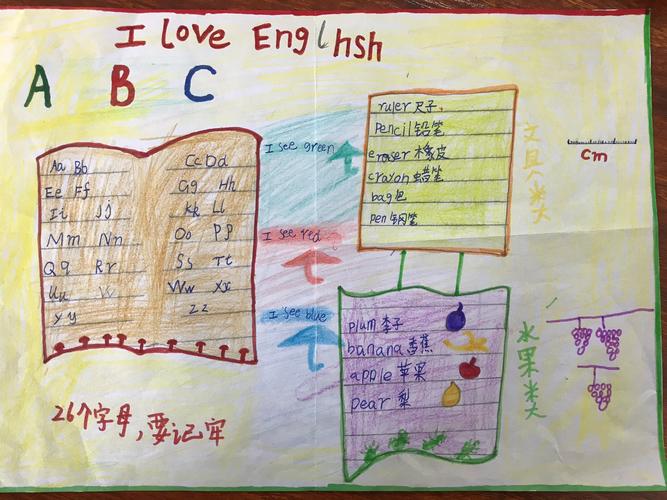 I love Englhsh
A B C
Aa Bb Cc Dd
Ee Ff Gg Hh
Ii Jj Kk Ll
Mm Nn Oo Pp
Qq Rr Ss Tt
Uu Vv Ww Xx
Yy Zz
26个字母，要记牢
I see green
I see red
I see blue
ruler 尺子
Pencil 铅笔
eraser 橡皮
crayon 蜡笔
bag 包
pen 钢笔
文具类
cm
plum 李子
banana 香蕉
apple 苹果
pear 梨
水果类